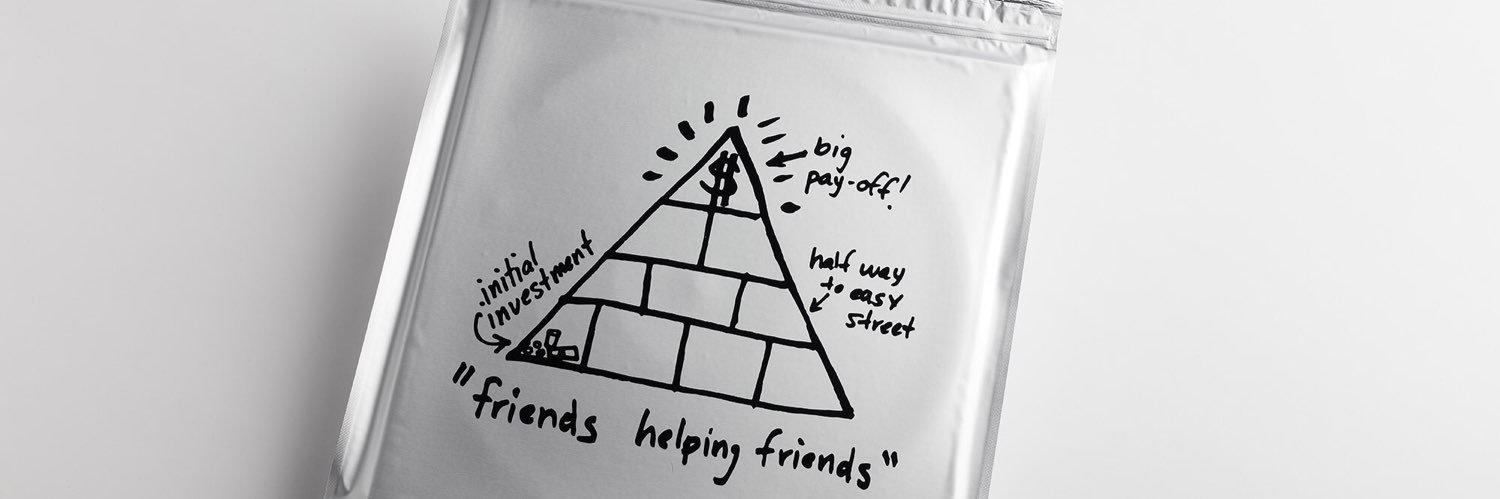 $
big
pay-off!
initial
investment
half way
to easy
street
"friends helping friends"